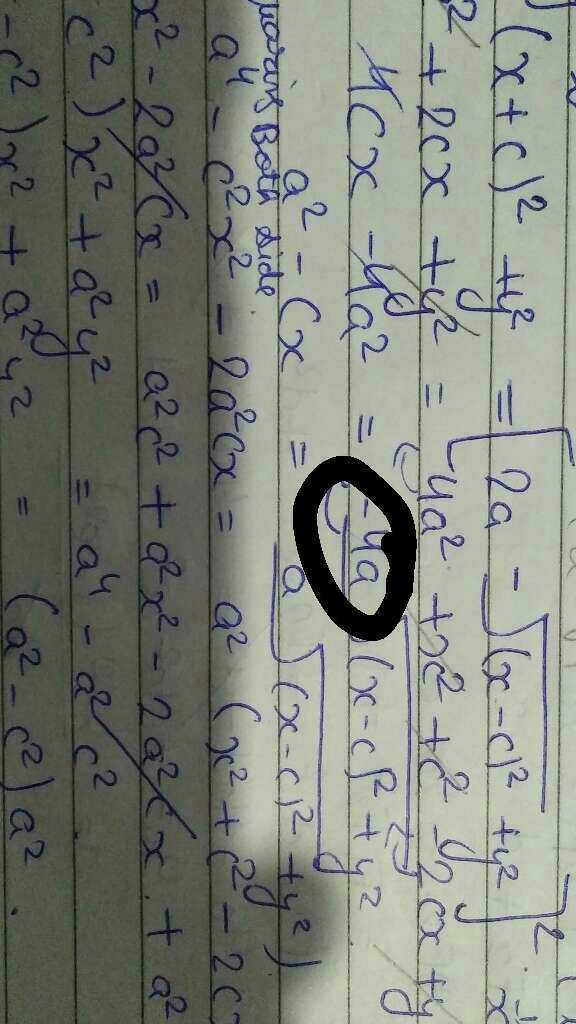 (x+c)² + y² = [2a - √(x-c)² + y²]²
² + 2cx + y² = 4a² + x² + c² - 2cx + y
4cx - 4a² = -4a √(x-c)² + y²
a² - cx = a √(x-c)² + y²
Both side
a⁴ - c²x² - 2a²cx = a² (x² + c² - 2c
x² - 2a²cx = a²c² + a²x² - 2a²cx + a²
c²) x² + a²y² = a⁴ - a²c²
-c²) x² + a²y² = (a² - c²) a².